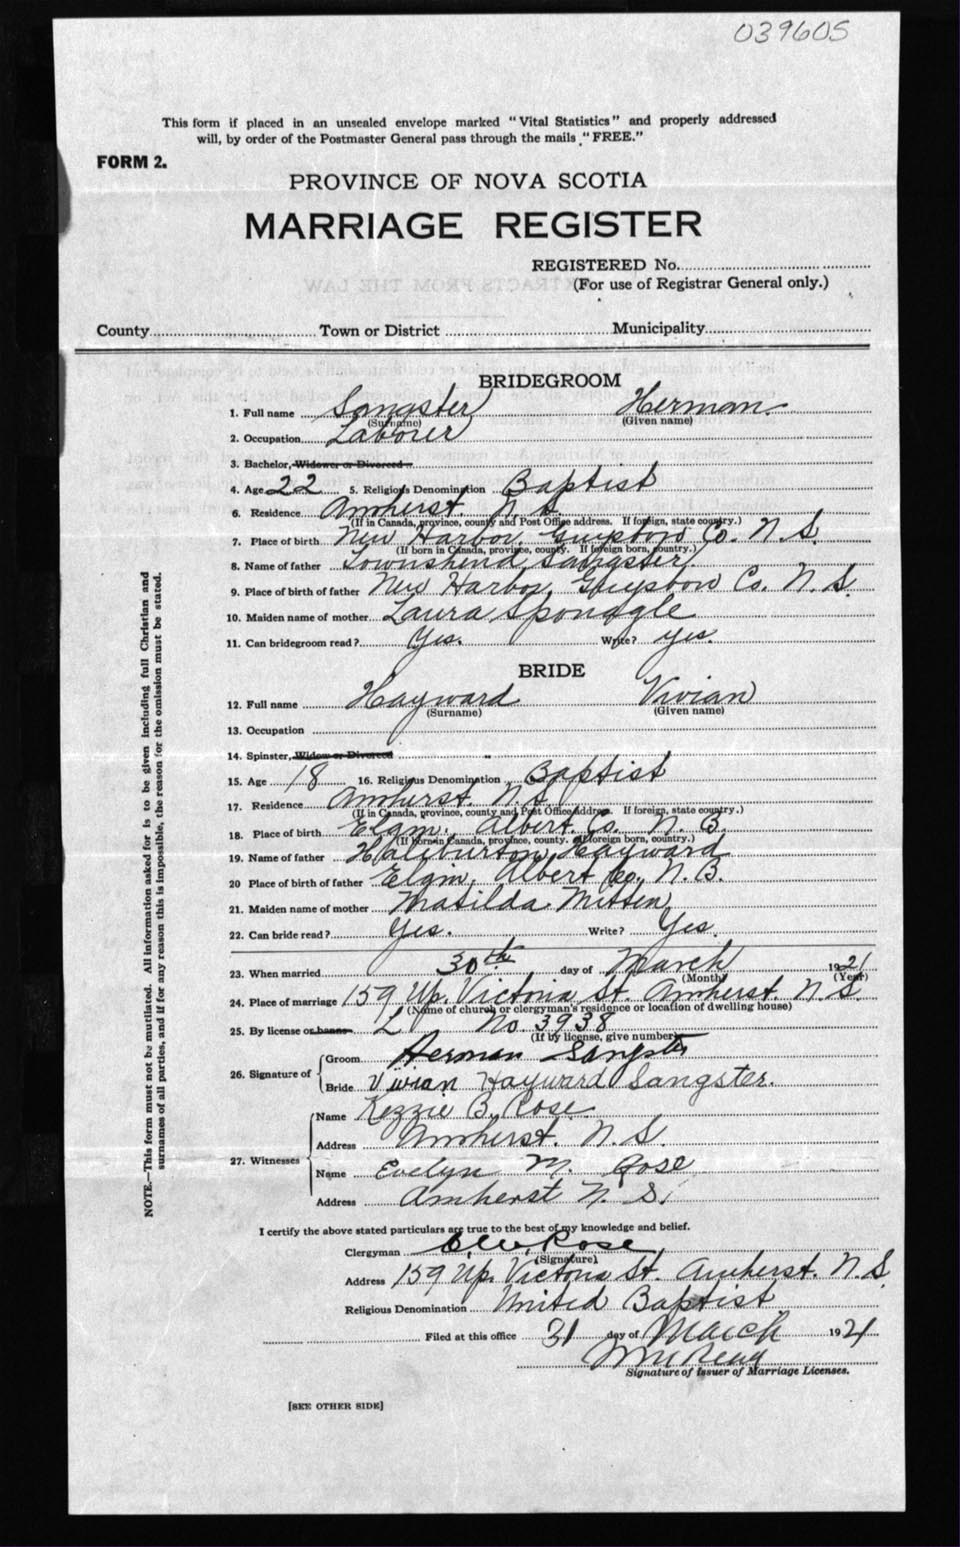 039605
This form if placed in an unsealed envelope marked "Vital Statistics" and properly addressed
will, by order of the Postmaster General pass through the mails "FREE."
FORM 2.
PROVINCE OF NOVA SCOTIA
MARRIAGE REGISTER
REGISTERED No.
(For use of Registrar General only.)
County Town or District Municipality
BRIDEGROOM
1. Full name Sangster Herman
(Surname) (Given name)
2. Occupation Laborer
3. Bachelor, Widower or Divorced
4. Age 22 5. Religious Denomination Baptist
6. Residence Amherst. N. S.
(If in Canada, province, county and Post Office address. If foreign, state country.)
7. Place of birth New Harbor, Guysboro Co. N. S.
(If born in Canada, province, county. If foreign born, country.)
8. Name of father Townshend Sangster.
9. Place of birth of father New Harbor, Guysboro Co. N. S.
10. Maiden name of mother Laura Sponagle
11. Can bridegroom read? Yes. Write? Yes.
BRIDE
12. Full name Hayward Vivian
(Surname) (Given name)
13. Occupation
14. Spinster, Widow or Divorced
15. Age 18 16. Religious Denomination Baptist
17. Residence Amherst. N. S.
(If in Canada, province, county and Post Office Address. If foreign, state country.)
18. Place of birth Elgin, Albert Co. N. B.
(If born in Canada, province, county. If foreign born, country.)
19. Name of father Haliburton Hayward
20 Place of birth of father Elgin, Albert Co, N. B.
21. Maiden name of mother Matilda Mitten
22. Can bride read? Yes. Write? Yes.
23. When married 30th day of March 1921
(Month) (Year)
24. Place of marriage 159 Up. Victoria St. Amherst. N. S.
(Name of church or clergyman's residence or location of dwelling house)
25. By license or banns L No. 3938
(If by license, give number)
26. Signature of Groom Herman Sangster
Bride Vivian Hayward Sangster.
27. Witnesses Name Kezzie B. Rose
Address Amherst. N. S.
Name Evelyn M. Rose
Address Amherst N. S.
I certify the above stated particulars are true to the best of my knowledge and belief.
Clergyman Rose
(Signature)
Address 159 Up. Victoria St. Amherst. N. S.
Religious Denomination United Baptist
Filed at this office 31 day of March 1921
Signature of Issuer of Marriage Licenses.
[SEE OTHER SIDE]
NOTE.—This form must not be mutilated. All information asked for is to be given including full Christian and
surnames of all parties, and if for any reason this is impossible, the reason for the omission must be stated.